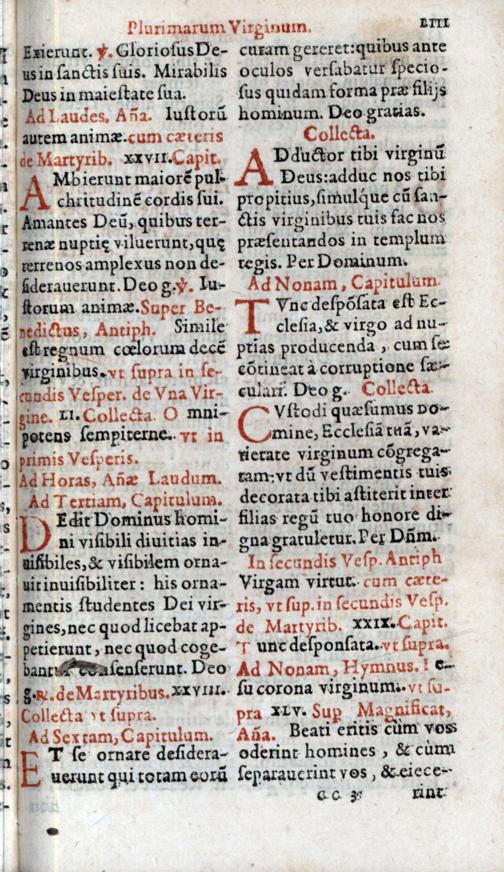 Plurimarum Virginum. LIII
Exierunt. ℣. Gloriosus De-
us in sanctis suis. Mirabilis
Deus in maiestate sua.
Ad Laudes, Aña. Iustorũ
autem animæ. cum cæteris
de Martyrib. XXVII. Capit.
AMbierunt maiorẽ pul-
chritudinẽ cordis sui.
Amantes Deũ, quibus ter-
renæ nuptię viluerunt, quę
terrenos amplexus non de-
siderauerunt. Deo g. ℣. Iu-
storum animæ. Super Be-
nedictus, Antiph. Simile
est regnum cœlorum decẽ
virginibus. vt supra in se-
cundis Vesper. de Vna Vir-
gine. LI. Collecta. O mni-
potens sempiterne. vt in
primis Vesperis.
Ad Horas, Añæ Laudum.
Ad Tertiam, Capitulum.
DEdit Dominus homi-
ni visibili diuitias in-
uisibiles, & visibilem orna-
uit inuisibiliter: his orna-
mentis studentes Dei vir-
gines, nec quod licebat ap-
petierunt, nec quod coge-
bantur consenserunt. Deo
g. ℟. de Martyribus. XXVIII.
Collecta vt supra.
Ad Sextam, Capitulum.
ET se ornare desidera-
uerunt qui totam eorũ
curam gereret: quibus ante
oculos versabatur specio-
sus quidam forma præ filijs
hominum. Deo gratias.
Collecta.
ADductor tibi virginũ
Deus: adduc nos tibi
propitius, simulque cũ san-
ctis virginibus tuis fac nos
præsentandos in templum
regis. Per Dominum.
Ad Nonam, Capitulum.
TVnc despõsata est Ec-
clesia, & virgo ad nu-
ptias producenda, cum se
cõtineat à corruptione sæ-
culari. Deo g. Collecta.
CVstodi quæsumus Do-
mine, Ecclesiã tuã, va-
rietate virginum cõgrega-
tam: vt dũ vestimentis tuis
decorata tibi astiterit inter
filias regũ tuo honore di-
gna gratuletur. Per Dñm.
In secundis Vesp. Antiph
Virgam virtut. cum cæte-
ris, vt sup. in secundis Vesp.
de Martyrib. XXIX. Capit.
T unc desponsata. vt supra.
Ad Nonam, Hymnus. I e-
su corona virginum. vt su-
pra XLV. Sup Magnificat,
Aña. Beati eritis cùm vos
oderint homines, & cùm
separauerint vos, & eiece-
rint